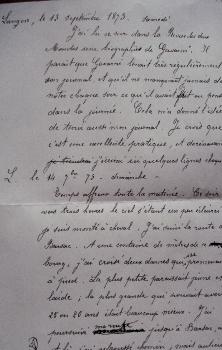 Langon, le 13 septembre 1873. Samedi
J'ai lu ce soir dans la Revue des
Mondes une biographie de Gavarni. Il
paraît que Gavarni tenait très régulièrement
son journal, et qu'il ne manquait jamais de
noter chaque soir ce qu'il avait fait ou pensé
dans la journée. Cela m'a donné l'idée
de tenir aussi mon journal. Je crois que
c'est une excellente pratique, et dorénavant
j'écrirai ici quelques lignes chaque
L. le 14 7bre 73 - dimanche -
Temps affreux toute la matinée. Ce soir
vers trois heures le ciel s'étant un peu éclairci
je suis monté à cheval. J'ai suivi la route de
Bazas. A une centaine de mètres de
bourg, j'ai croisé deux dames qui se promenaient
à pied. La plus petite paraissait jeune et
laide; la plus grande qui pouvait avoir
25 ou 30 ans était beaucoup mieux. J'ai
poursuivi ma route jusqu'à Bazas,